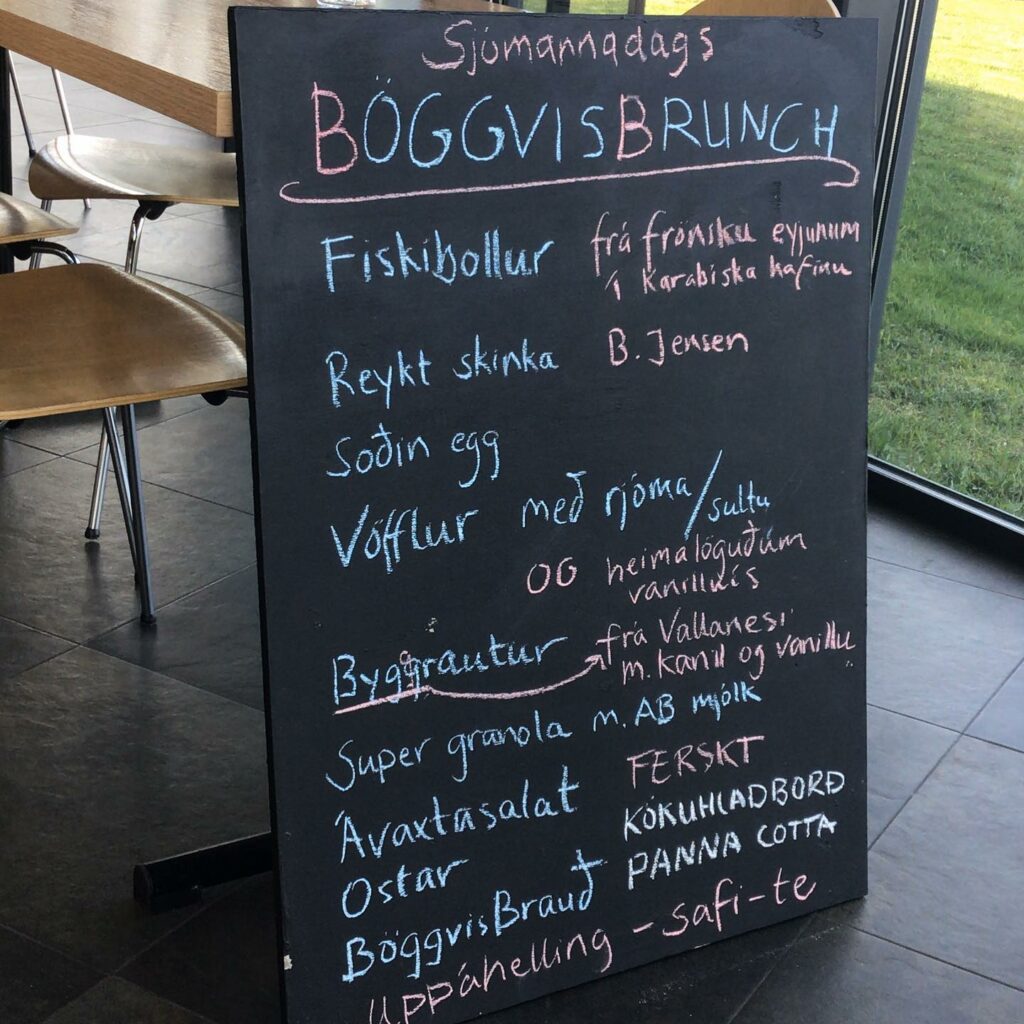 Sjómannadags
BÖGGVISBRUNCH
Fiskibollur frá frönsku eyjunum
í Karabiska hafinu
Reykt skinka B. Jensen
Soðin egg
Vöfflur með rjóma/sultu
OG heimalöguðum
vanilluís
Byggrautur frá Vallanesi
m. kanil og vanillu
Super granola m. AB mjólk
Ávaxtasalat FERSKT
Ostar KÖKUHLADBORÐ
BöggvisBrauð PANNA COTTA
Uppáhelling - safi - te